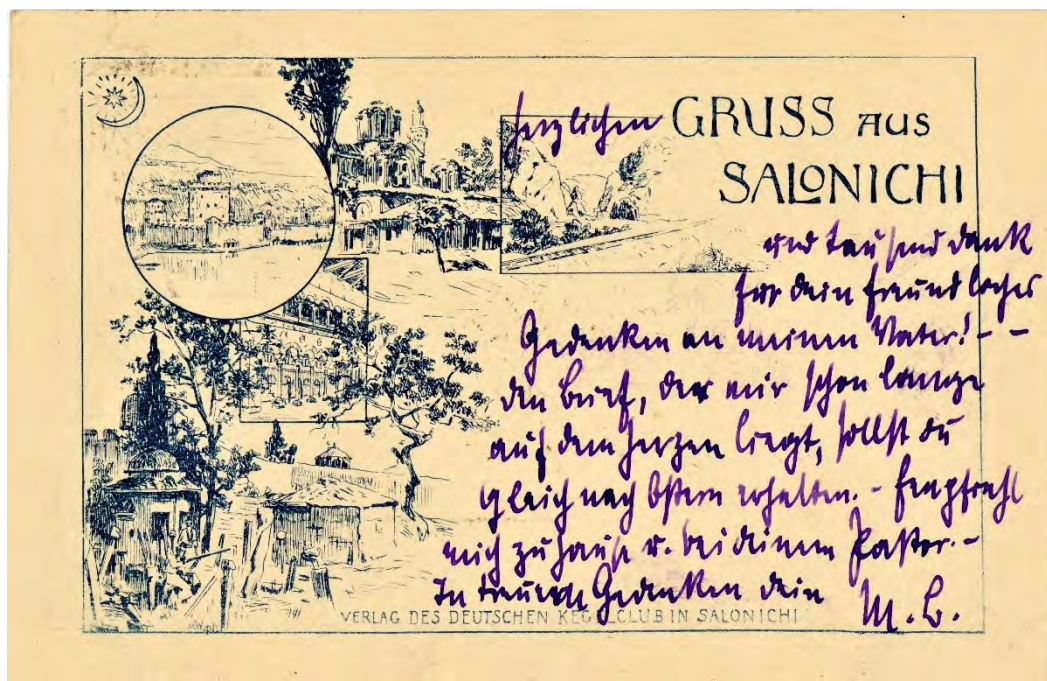 herzlichen GRUSS AUS
SALONICHI
und tausend Dank
für dein freundliches
Gedenken an meinen Vater! - -
Den Brief, der mir schon lange
auf dem Herzen liegt, sollst du
gleich nach Ostern erhalten. - Empfiehl
mich zu Hause u. bei deinem Pastor. -
In treuem Gedenken dein
M. B.
VERLAG DES DEUTSCHEN KEGELCLUB IN SALONICHI